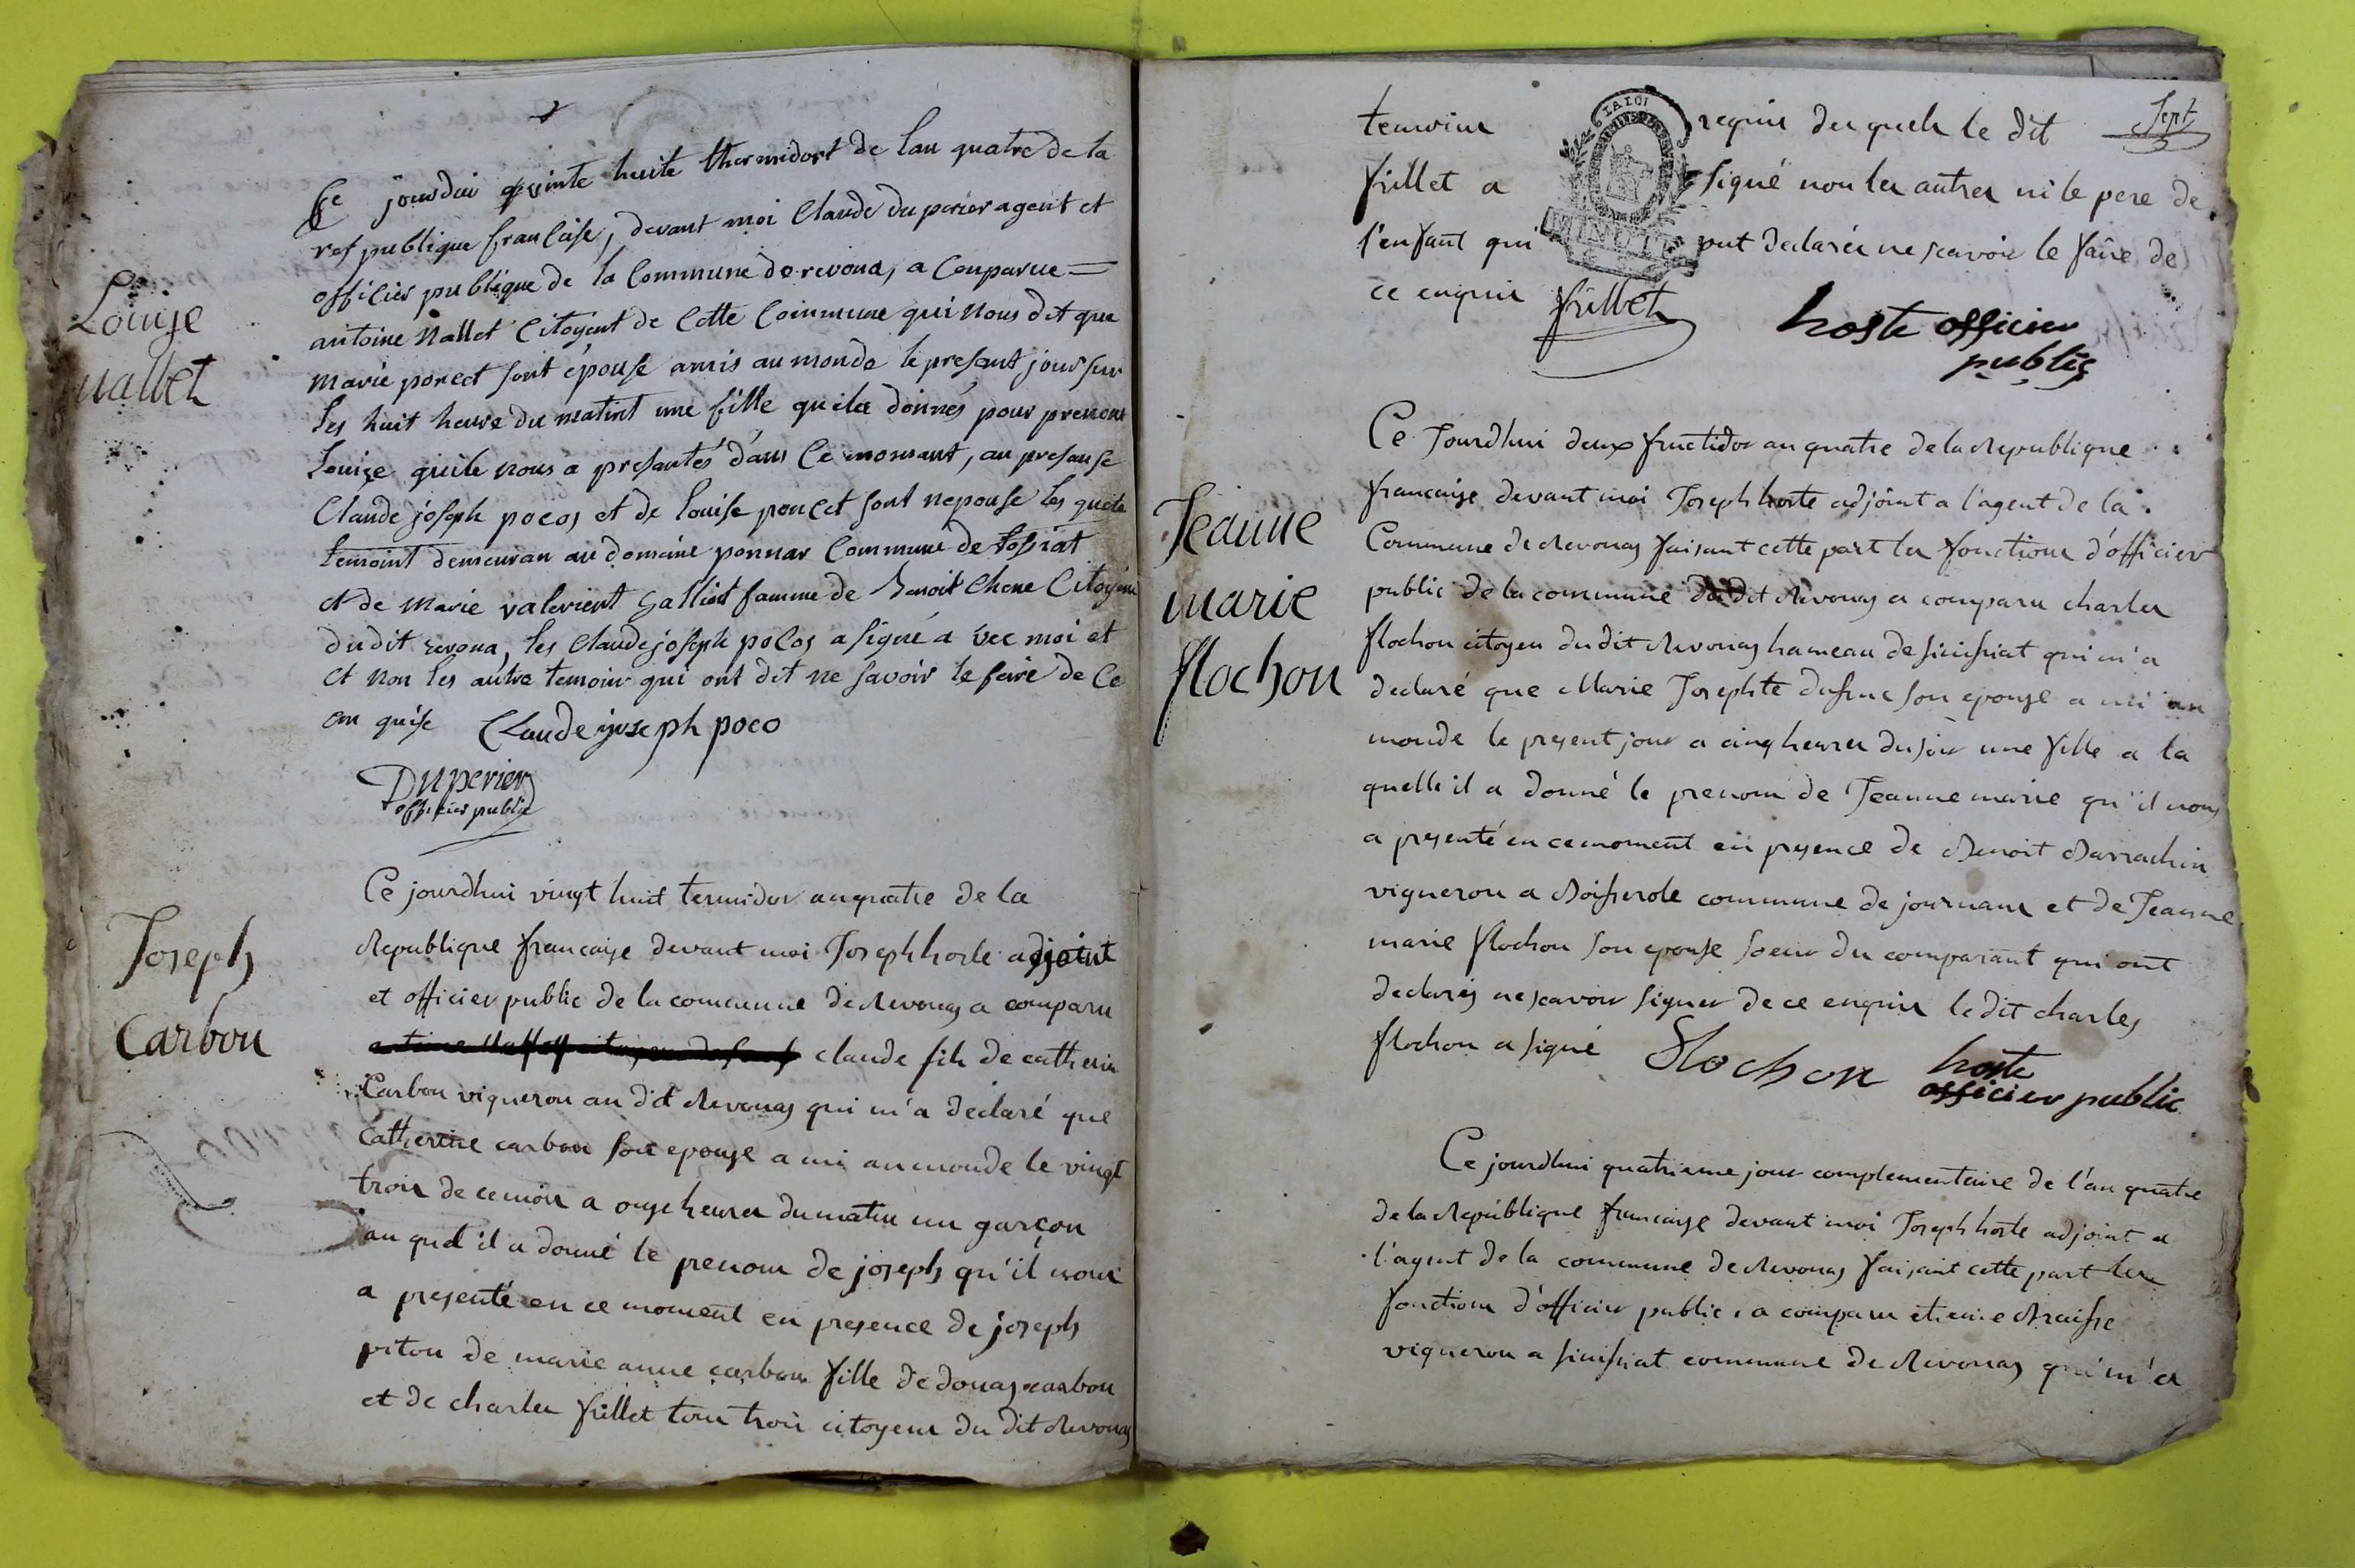 Louise
nallet
Ce jourdui vuinte huite thermidort de lan quatre de la
republique francaise, devant moi Claude Duperier agent et
officier publique de la Commune de revona, a Conparue
antoine Nallet Citoyent de Cette Commune qui nous dit que
marie poncet sont épouse amis au monde le presant jour sur
les huit heure du matint une fille quila donnés pour prenom
Louize quile nous a presantés dans Ce momant, au presanse
Claude joseph pocos et de louise poncet sont nepouse les quele
temoint demeuran au domaine ponnar Commune de tossiat
et de marie valerient galliot famme de benoit Chene Citoyens
du dit revona, les Claude joseph pocos a signé a vec moi et
et non les autre temoins qui ont dit ne savoir le faire de Ce
en quise Claude joseph poco
Duperier
officier public
Joseph
Carbon
Ce jourdhui vingt huit termidor an quatre de la
Republique francaise devant moi Joseph hoste adjoint
et officier public de la commune de Revonas a comparu
claude fils de catherin
Carbon vigneron au dit Revonas qui m'a declaré que
Catherine carbon son epouse a mi au monde le vingt
trois de ce mois a onze heures du matin un garçon
au quel il a donné le prenom de joseph qu'il nous
a presenté en ce moment en presence de joseph
piton de marie anne carbon fille de donas carbon
et de charles fillet tous trois citoyens du dit Revonas
Sept
temoins requis des quels le dit
fillet a signé non les autres ni le pere de
l'enfant qui ont declarés ne scavoir le faire de
ce enquis fillet
hoste officier
public
Jeanne
marie
flochon
Ce Jourdhui deux fructidor an quatre de la Republique
francaise devant moi Joseph hoste adjoint a l'agent de la
Commune de Revonas faisant cette part les fonctions d'officier
public de la commune du dit Revonas a comparu charles
flochon citoyen du dit Revonas hameau de sinissiat qui m'a
declaré que Marie Josephte son epouse a mi au
monde le present jour a cinq heures du soir une fille a la
quelle il a donné le prenom de Jeanne marie qu'il nous
a presenté en ce moment en presence de Benoit Barrachin
vigneron a Boisserole commune de journans et de Jeanne
marie flochon son epouse soeur du comparant qui ont
declarés ne scavoir signer de ce enquis le dit charles
flochon a signé Flochon hoste
officier public
Ce jourdhui quatrieme jour complementaire de l'an quatre
de la Republique francaise devant moi Joseph hoste adjoint a
l'agent de la commune de Revonas faisant cette part les
fonctions d'officier public, a comparu etienne
vigneron a sinissiat commune de Revonas qui m'a